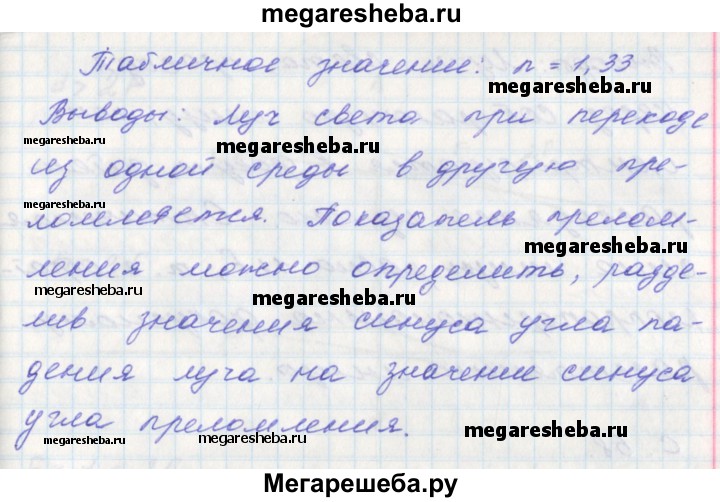 megaresheba.ru
Табличное значение: n = 1,33
Выводы: Луч света при переходе
megaresheba.ru
megaresheba.ru
из одной среды в другую пре-
ломляется. Показатель прелом-
megaresheba.ru
ления можно определить, разде-
megaresheba.ru
megaresheba.ru
лив значения синуса угла па-
дения луча на значение синуса
угла преломления.
megaresheba.ru
megaresheba.ru
megaresheba.ru
Мегарешеба.ру